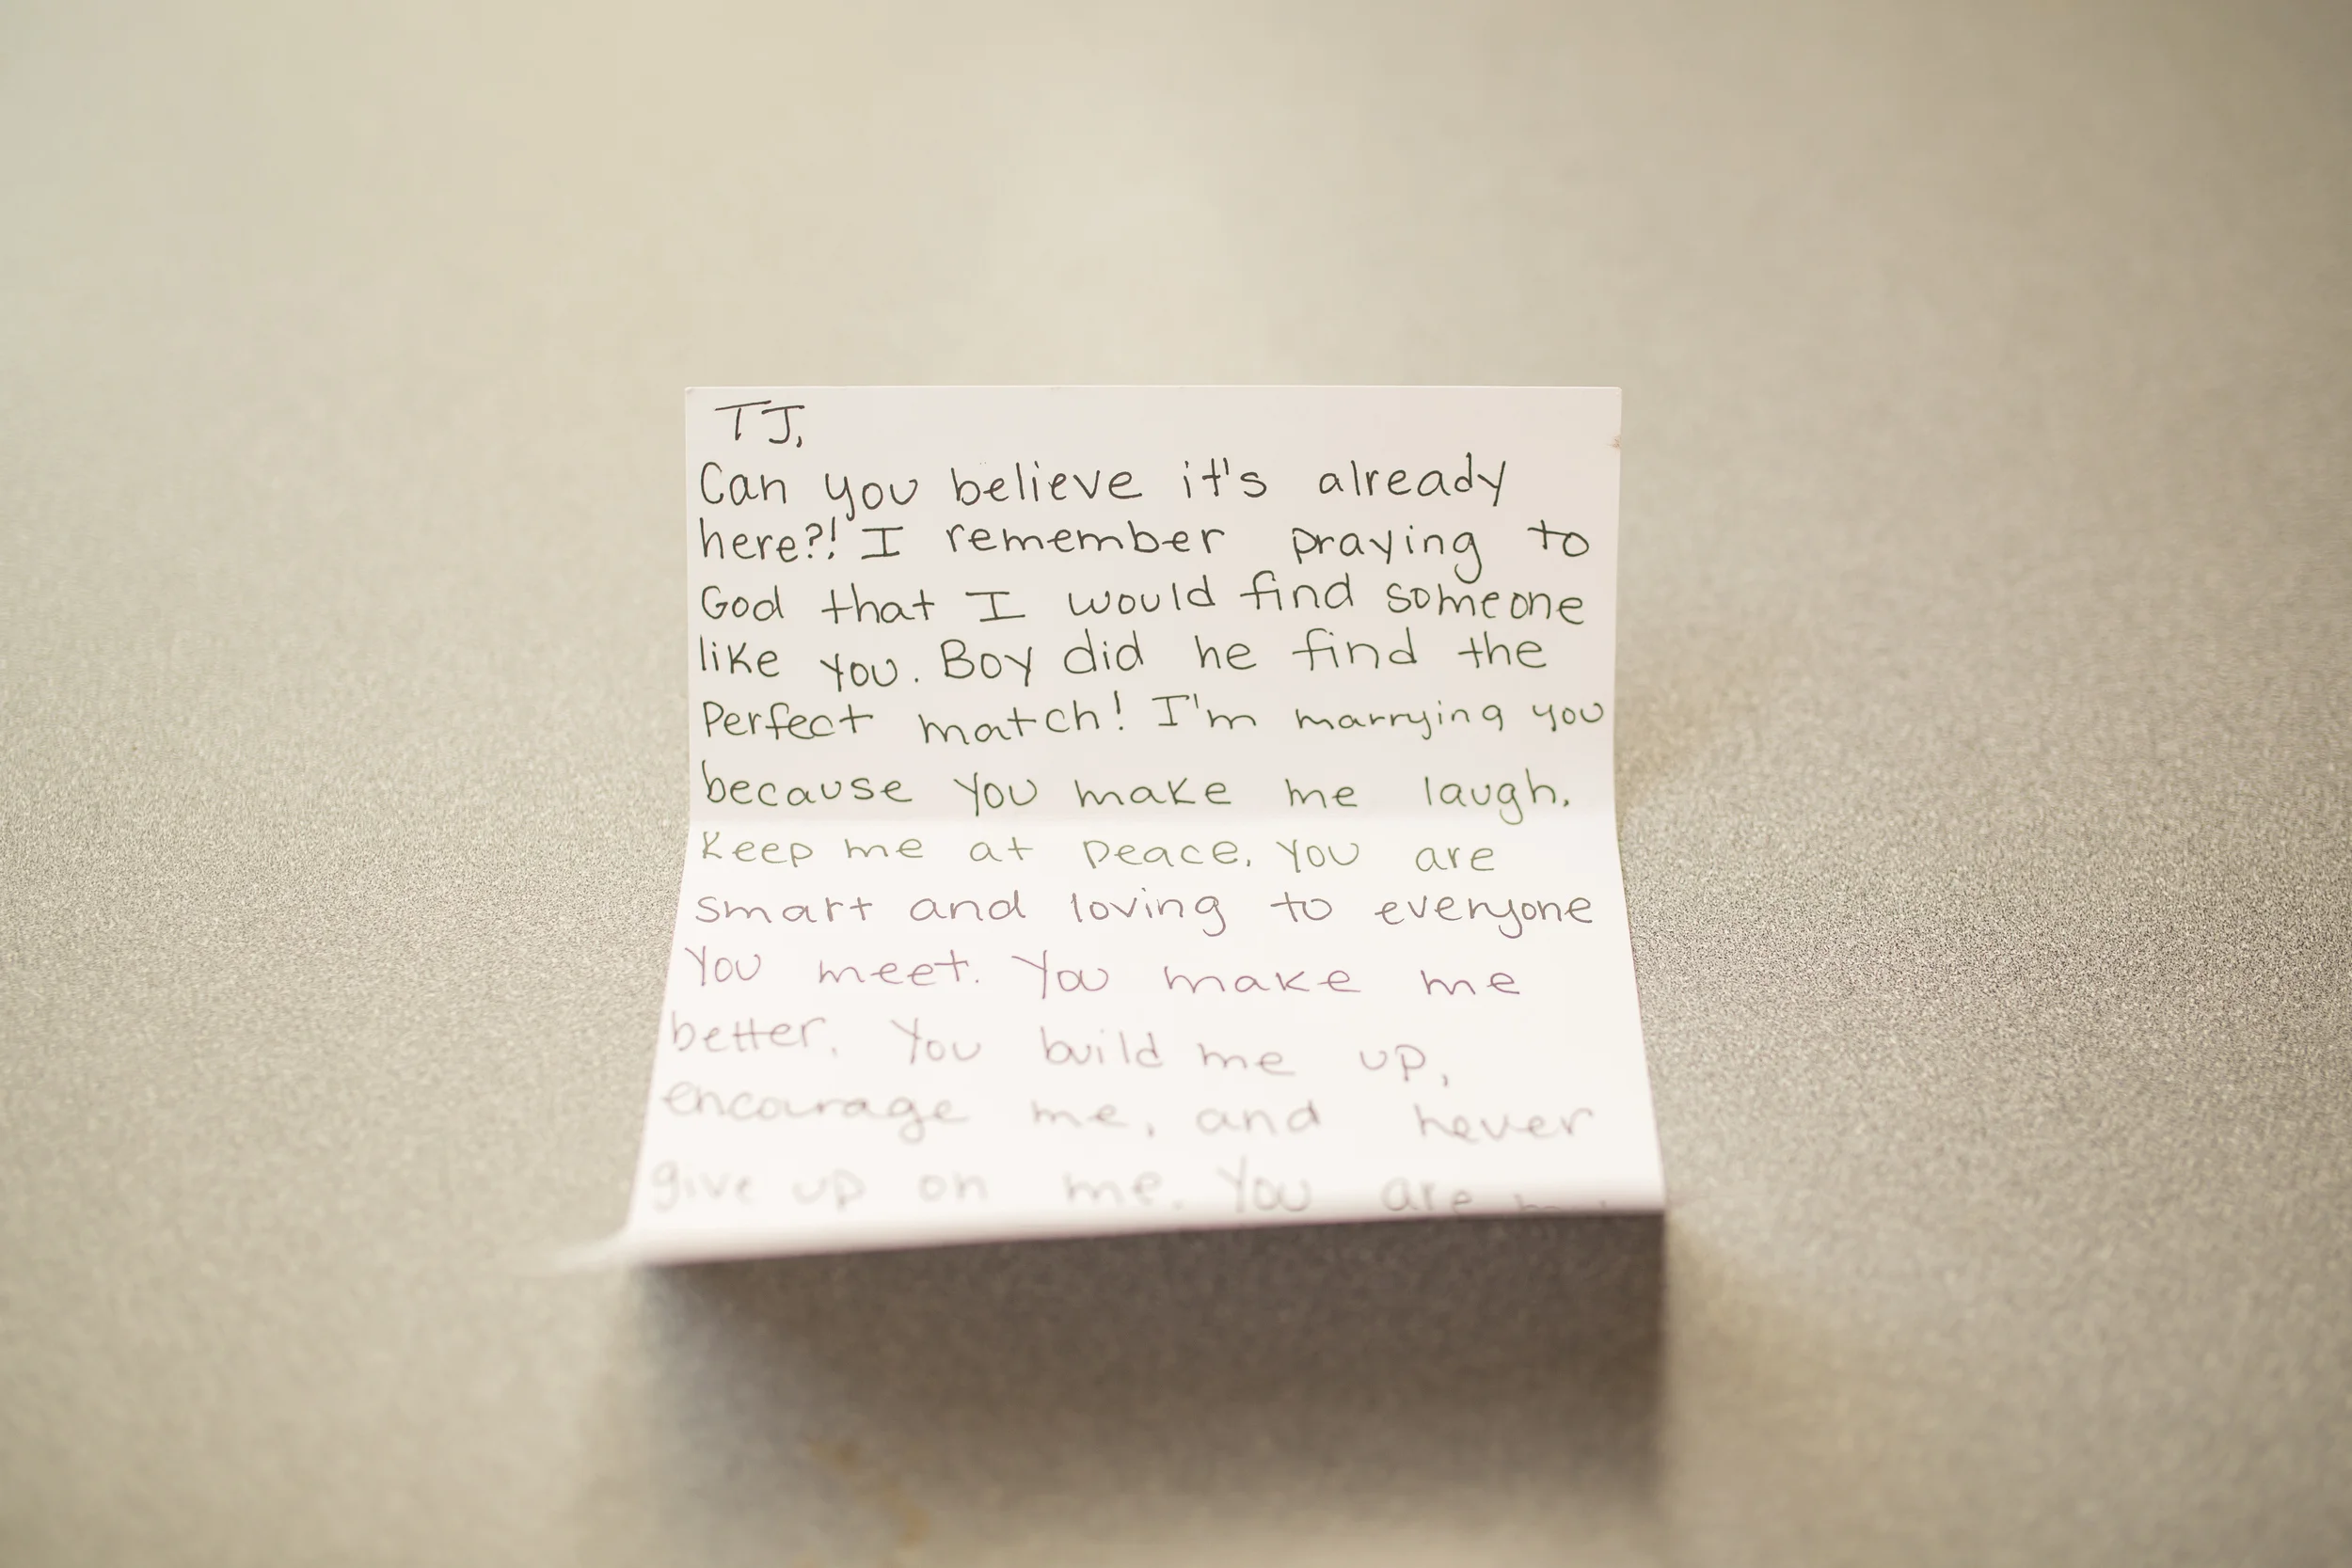 TJ,
Can you believe it's already
here?! I remember praying to
God that I would find someone
like you. Boy did he find the
Perfect match! I'm marrying you
because you make me laugh.
Keep me at peace. You are
smart and loving to everyone
You meet. You make me
better. You build me up,
encourage me, and never
give up on me. You are